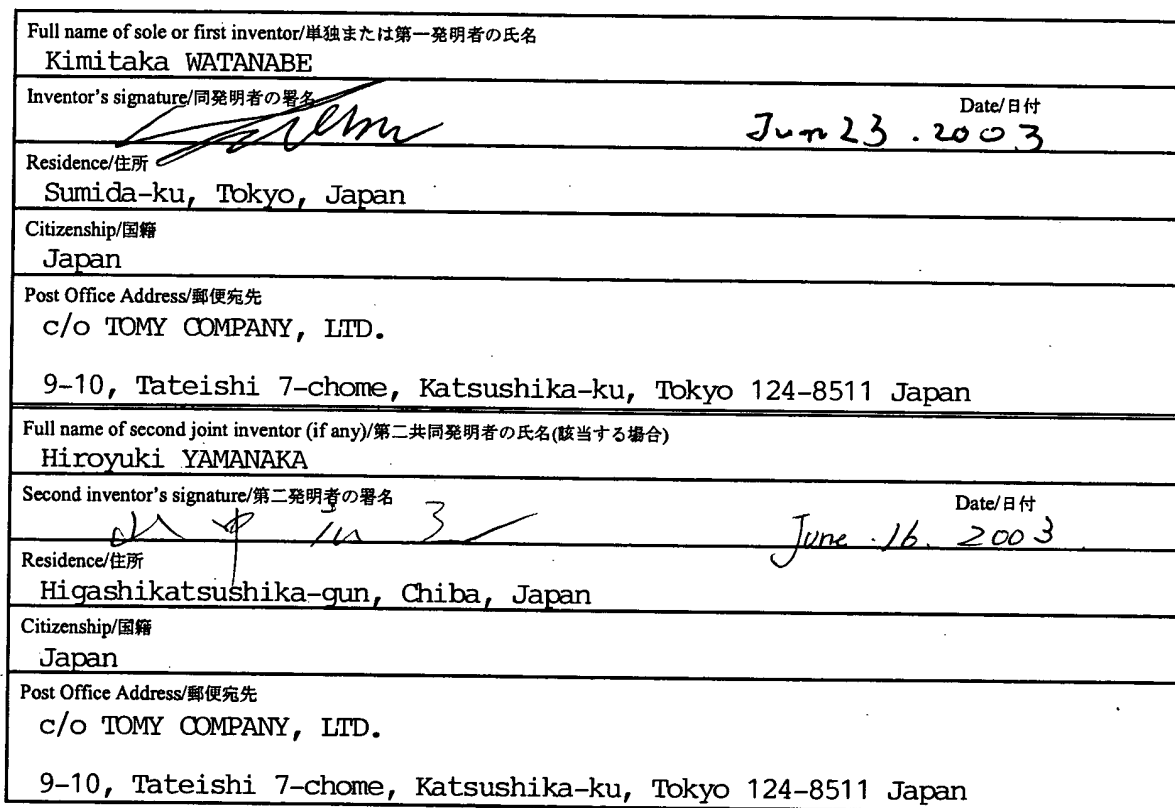 Full name of sole or first inventor/単独または第一発明者の氏名
Kimitaka WATANABE
Inventor's signature/同発明者の署名 Date/日付
Jun 23 . 2003
Residence/住所
Sumida-ku, Tokyo, Japan
Citizenship/国籍
Japan
Post Office Address/郵便宛先
c/o TOMY COMPANY, LTD.
9-10, Tateishi 7-chome, Katsushika-ku, Tokyo 124-8511 Japan
Full name of second joint inventor (if any)/第二共同発明者の氏名(該当する場合)
Hiroyuki YAMANAKA
Second inventor's signature/第二発明者の署名 Date/日付
山中 June . 16. 2003
Residence/住所
Higashikatsushika-gun, Chiba, Japan
Citizenship/国籍
Japan
Post Office Address/郵便宛先
c/o TOMY COMPANY, LTD.
9-10, Tateishi 7-chome, Katsushika-ku, Tokyo 124-8511 Japan